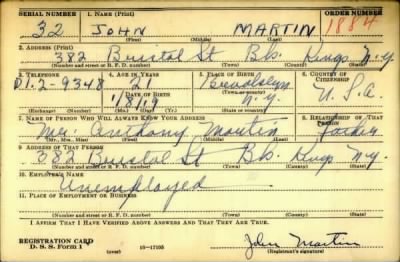 SERIAL NUMBER 1. NAME (Print) ORDER NUMBER
32 JOHN MARTIN 1884
(First) (Middle) (Last)
2. ADDRESS (Print)
382 Bristol St Bk. Kings N.Y.
(Number and street or R. F. D. number) (Town) (County) (State)
3. TELEPHONE 4. AGE IN YEARS 5. PLACE OF BIRTH 6. COUNTRY OF CITIZENSHIP
DI.2-9348 21 Brooklyn
DATE OF BIRTH
1/8/19 N.Y. U.S.A.
(Exchange) (Number) (Mo.) (Day) (Yr.) (State or country)
7. NAME OF PERSON WHO WILL ALWAYS KNOW YOUR ADDRESS 8. RELATIONSHIP OF THAT PERSON
Mr. Anthony Martin Father
(Mr., Mrs., Miss) (First) (Middle) (Last)
9. ADDRESS OF THAT PERSON
382 Bristol St Bk. Kings N.Y.
(Number and street or R. F. D. number) (Town) (County) (State)
10. EMPLOYER'S NAME
Unemployed
11. PLACE OF EMPLOYMENT OR BUSINESS
(Number and street or R. F. D. number) (Town) (County) (State)
I AFFIRM THAT I HAVE VERIFIED ABOVE ANSWERS AND THAT THEY ARE TRUE.
REGISTRATION CARD
D. S. S. Form 1 16-17105 John Martin
(Registrant's signature)